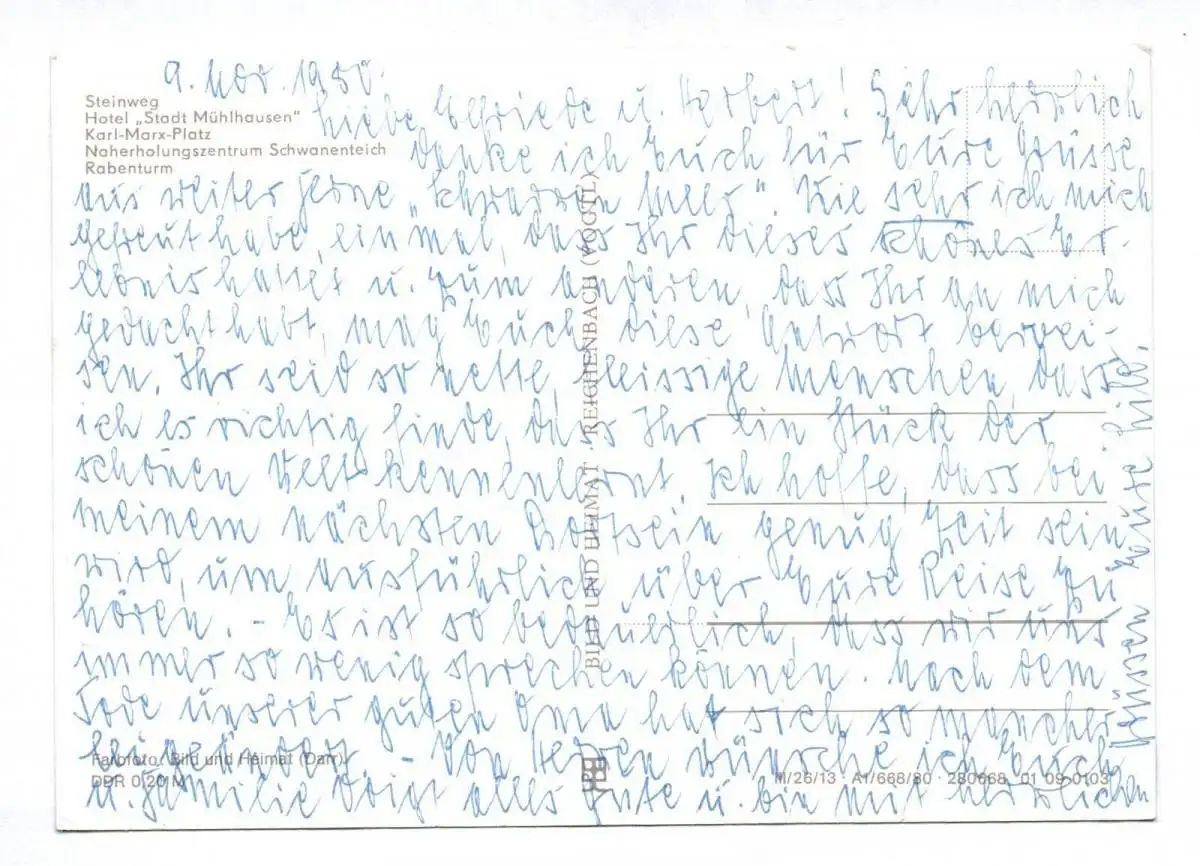 9. Nov. 1980.
Steinweg
Hotel „Stadt Mühlhausen"
Karl-Marx-Platz
Naherholungszentrum Schwanenteich
Rabenturm
Liebe Elfriede u. Herbert! Sehr herzlich
danke ich Euch für Eure Grüsse
aus weiter Ferne „Schwarzen Meer". Wie sehr ich mich
gefreut habe, einmal, dass Ihr dieses schönes Er-
lebnis hattet u. zum anderen, dass Ihr an mich
gedacht habt, mag Euch diese Antwort bewei-
sen. Ihr seid so nette, fleissige Menschen, dass
ich es richtig finde, dass Ihr ein Stück der
schönen Welt kennenlernt. Ich hoffe, dass bei
meinem nächsten Dortsein genug Zeit sein
wird, um ausführlich über Eure Reise zu
hören. - Es ist so bedauerlich, dass wir uns
immer so wenig sprechen können. Nach dem
Tode unserer guten Oma hat sich so mancher
geändert. - Von Herzen wünsche ich Euch
u. Familie Voigt alles Gute u. bin mit herzlichen
Grüssen Eure Hild.
Farbfoto: Bild und Heimat (Darr)
DDR 0,20 M
BILD UND HEIMAT · REICHENBACH (VOGTL)
III/26/13 · A1/668/80 · 280668 01 09 0103